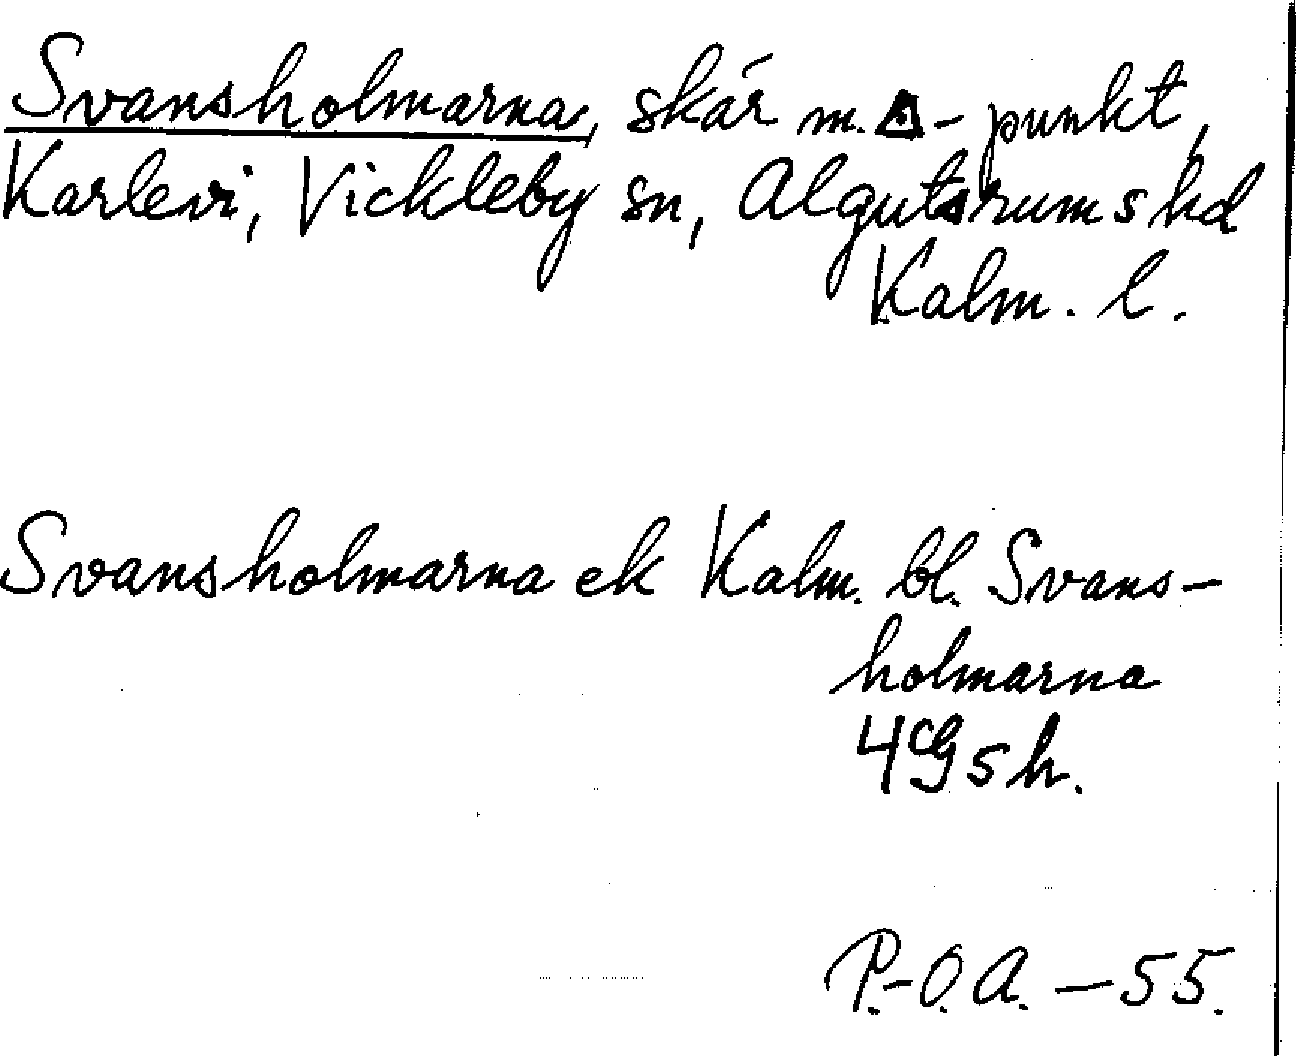 Svansholmarna, skär m. △-punkt,
Karlevi, Vickleby sn, Algutsrums hd
Kalm. l.
Svansholmarna ek Kalm. bl. Svans-
holmarna
4G sh.
P.-O.A. - 55.